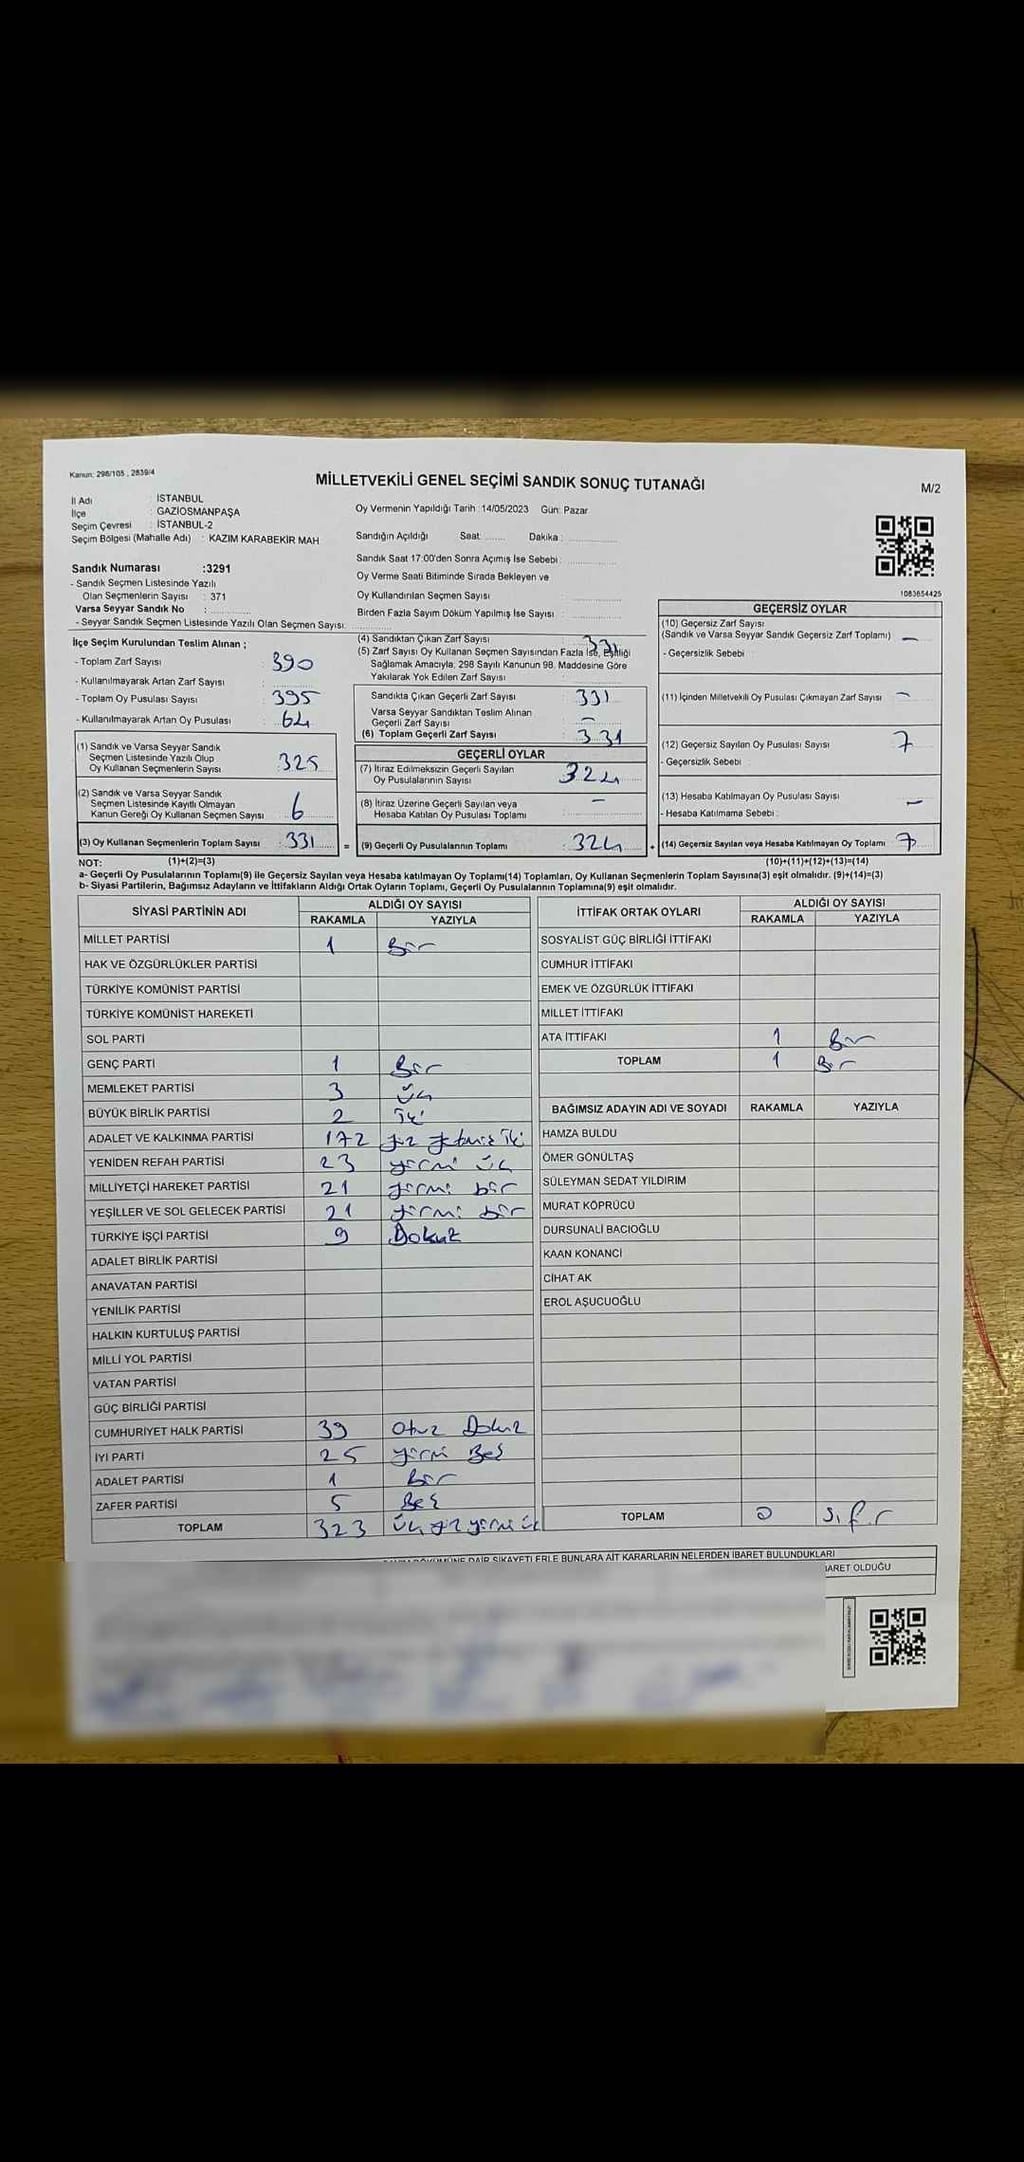 Kanun: 298/105 , 2839/4
MİLLETVEKİLİ GENEL SEÇİMİ SANDIK SONUÇ TUTANAĞI
M/2
İl Adı : İSTANBUL
İlçe : GAZİOSMANPAŞA
Seçim Çevresi : İSTANBUL-2
Seçim Bölgesi (Mahalle Adı) : KAZIM KARABEKİR MAH
Oy Vermenin Yapıldığı Tarih :14/05/2023 Gün: Pazar
Sandığın Açıldığı Saat: Dakika:
Sandık Saat 17:00'den Sonra Açımış İse Sebebi:
Oy Verme Saati Bitiminde Sırada Bekleyen ve
Oy Kullandırılan Seçmen Sayısı
Birden Fazla Sayım Döküm Yapılmış İse Sayısı
1083654425
Sandık Numarası :3291
- Sandık Seçmen Listesinde Yazılı
Olan Seçmenlerin Sayısı : 371
Varsa Seyyar Sandık No :
- Seyyar Sandık Seçmen Listesinde Yazılı Olan Seçmen Sayısı:
İlçe Seçim Kurulundan Teslim Alınan ;
- Toplam Zarf Sayısı : 390
- Kullanılmayarak Artan Zarf Sayısı
- Toplam Oy Pusulası Sayısı : 395
- Kullanılmayarak Artan Oy Pusulası : 64
(1) Sandık ve Varsa Seyyar Sandık
Seçmen Listesinde Yazılı Olup
Oy Kullanan Seçmenlerin Sayısı : 325
(2) Sandık ve Varsa Seyyar Sandık
Seçmen Listesinde Kayıtlı Olmayan
Kanun Gereği Oy Kullanan Seçmen Sayısı : 6
(3) Oy Kullanan Seçmenlerin Toplam Sayısı : 331
(4) Sandıktan Çıkan Zarf Sayısı : 331
(5) Zarf Sayısı Oy Kullanan Seçmen Sayısından Fazla İse, Eşitliği
Sağlamak Amacıyla, 298 Sayılı Kanunun 98. Maddesine Göre
Yakılarak Yok Edilen Zarf Sayısı
Sandıkta Çıkan Geçerli Zarf Sayısı : 331
Varsa Seyyar Sandıktan Teslim Alınan
Geçerli Zarf Sayısı : -
(6) Toplam Geçerli Zarf Sayısı : 331
GEÇERLİ OYLAR
(7) İtiraz Edilmeksizin Geçerli Sayılan
Oy Pusulalarının Sayısı : 324
(8) İtiraz Üzerine Geçerli Sayılan veya
Hesaba Katılan Oy Pusulası Toplamı : -
= (9) Geçerli Oy Pusulalarının Toplamı : 324
GEÇERSİZ OYLAR
(10) Geçersiz Zarf Sayısı
(Sandık ve Varsa Seyyar Sandık Geçersiz Zarf Toplamı) -
- Geçersizlik Sebebi :
(11) İçinden Milletvekili Oy Pusulası Çıkmayan Zarf Sayısı : -
(12) Geçersiz Sayılan Oy Pusulası Sayısı : 7
- Geçersizlik Sebebi :
(13) Hesaba Katılmayan Oy Pusulası Sayısı : -
- Hesaba Katılmama Sebebi :
+ (14) Geçersiz Sayılan veya Hesaba Katılmayan Oy Toplamı : 7
NOT: (1)+(2)=(3) (10)+(11)+(12)+(13)=(14)
a- Geçerli Oy Pusulalarının Toplamı(9) ile Geçersiz Sayılan veya Hesaba katılmayan Oy Toplamı(14) Toplamları, Oy Kullanan Seçmenlerin Toplam Sayısına(3) eşit olmalıdır. (9)+(14)=(3)
b- Siyasi Partilerin, Bağımsız Adayların ve İttifakların Aldığı Ortak Oyların Toplamı, Geçerli Oy Pusulalarının Toplamına(9) eşit olmalıdır.
SİYASİ PARTİNİN ADI ALDIĞI OY SAYISI
RAKAMLA YAZIYLA
MİLLET PARTİSİ 1 Bir
HAK VE ÖZGÜRLÜKLER PARTİSİ
TÜRKİYE KOMÜNİST PARTİSİ
TÜRKİYE KOMÜNİST HAREKETİ
SOL PARTİ
GENÇ PARTİ 1 Bir
MEMLEKET PARTİSİ 3 Üç
BÜYÜK BİRLİK PARTİSİ 2 İki
ADALET VE KALKINMA PARTİSİ 172 yüz yetmiş İki
YENİDEN REFAH PARTİSİ 23 yirmi üç
MİLLİYETÇİ HAREKET PARTİSİ 21 yirmi bir
YEŞİLLER VE SOL GELECEK PARTİSİ 21 yirmi bir
TÜRKİYE İŞÇİ PARTİSİ 9 Dokuz
ADALET BİRLİK PARTİSİ
ANAVATAN PARTİSİ
YENİLİK PARTİSİ
HALKIN KURTULUŞ PARTİSİ
MİLLİ YOL PARTİSİ
VATAN PARTİSİ
GÜÇ BİRLİĞİ PARTİSİ
CUMHURİYET HALK PARTİSİ 39 Otuz Dokuz
İYİ PARTİ 25 yirmi Beş
ADALET PARTİSİ 1 Bir
ZAFER PARTİSİ 5 Beş
TOPLAM 323 üç yüz yirmi üç
İTTİFAK ORTAK OYLARI ALDIĞI OY SAYISI
RAKAMLA YAZIYLA
SOSYALİST GÜÇ BİRLİĞİ İTTİFAKI
CUMHUR İTTİFAKI
EMEK VE ÖZGÜRLÜK İTTİFAKI
MİLLET İTTİFAKI
ATA İTTİFAKI 1 Bir
TOPLAM 1 Bir
BAĞIMSIZ ADAYIN ADI VE SOYADI RAKAMLA YAZIYLA
HAMZA BULDU
ÖMER GÖNÜLTAŞ
SÜLEYMAN SEDAT YILDIRIM
MURAT KÖPRÜCÜ
DURSUNALİ BACIOĞLU
KAAN KONANCİ
CİHAT AK
EROL AŞUCUOĞLU
TOPLAM 0 sıfır
DAİR ŞİKAYETLERLE BUNLARA AİT KARARLARIN NELERDEN İBARET BULUNDUKLARI
OLDUĞU